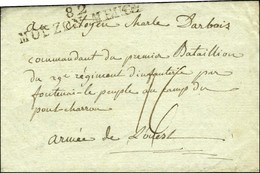 82
au Citoyen Merle Darbois
commandant du premier Bataillion
du 29e régiment d'infanterie par
fontenai-le peuple au camp du
pont-charron
armée de Louest